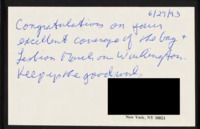 6/27/93
Congratulations on your
excellent coverage of the Gay +
Lesbian March on Washington.
Keep up the good work.
New York, NY 10021